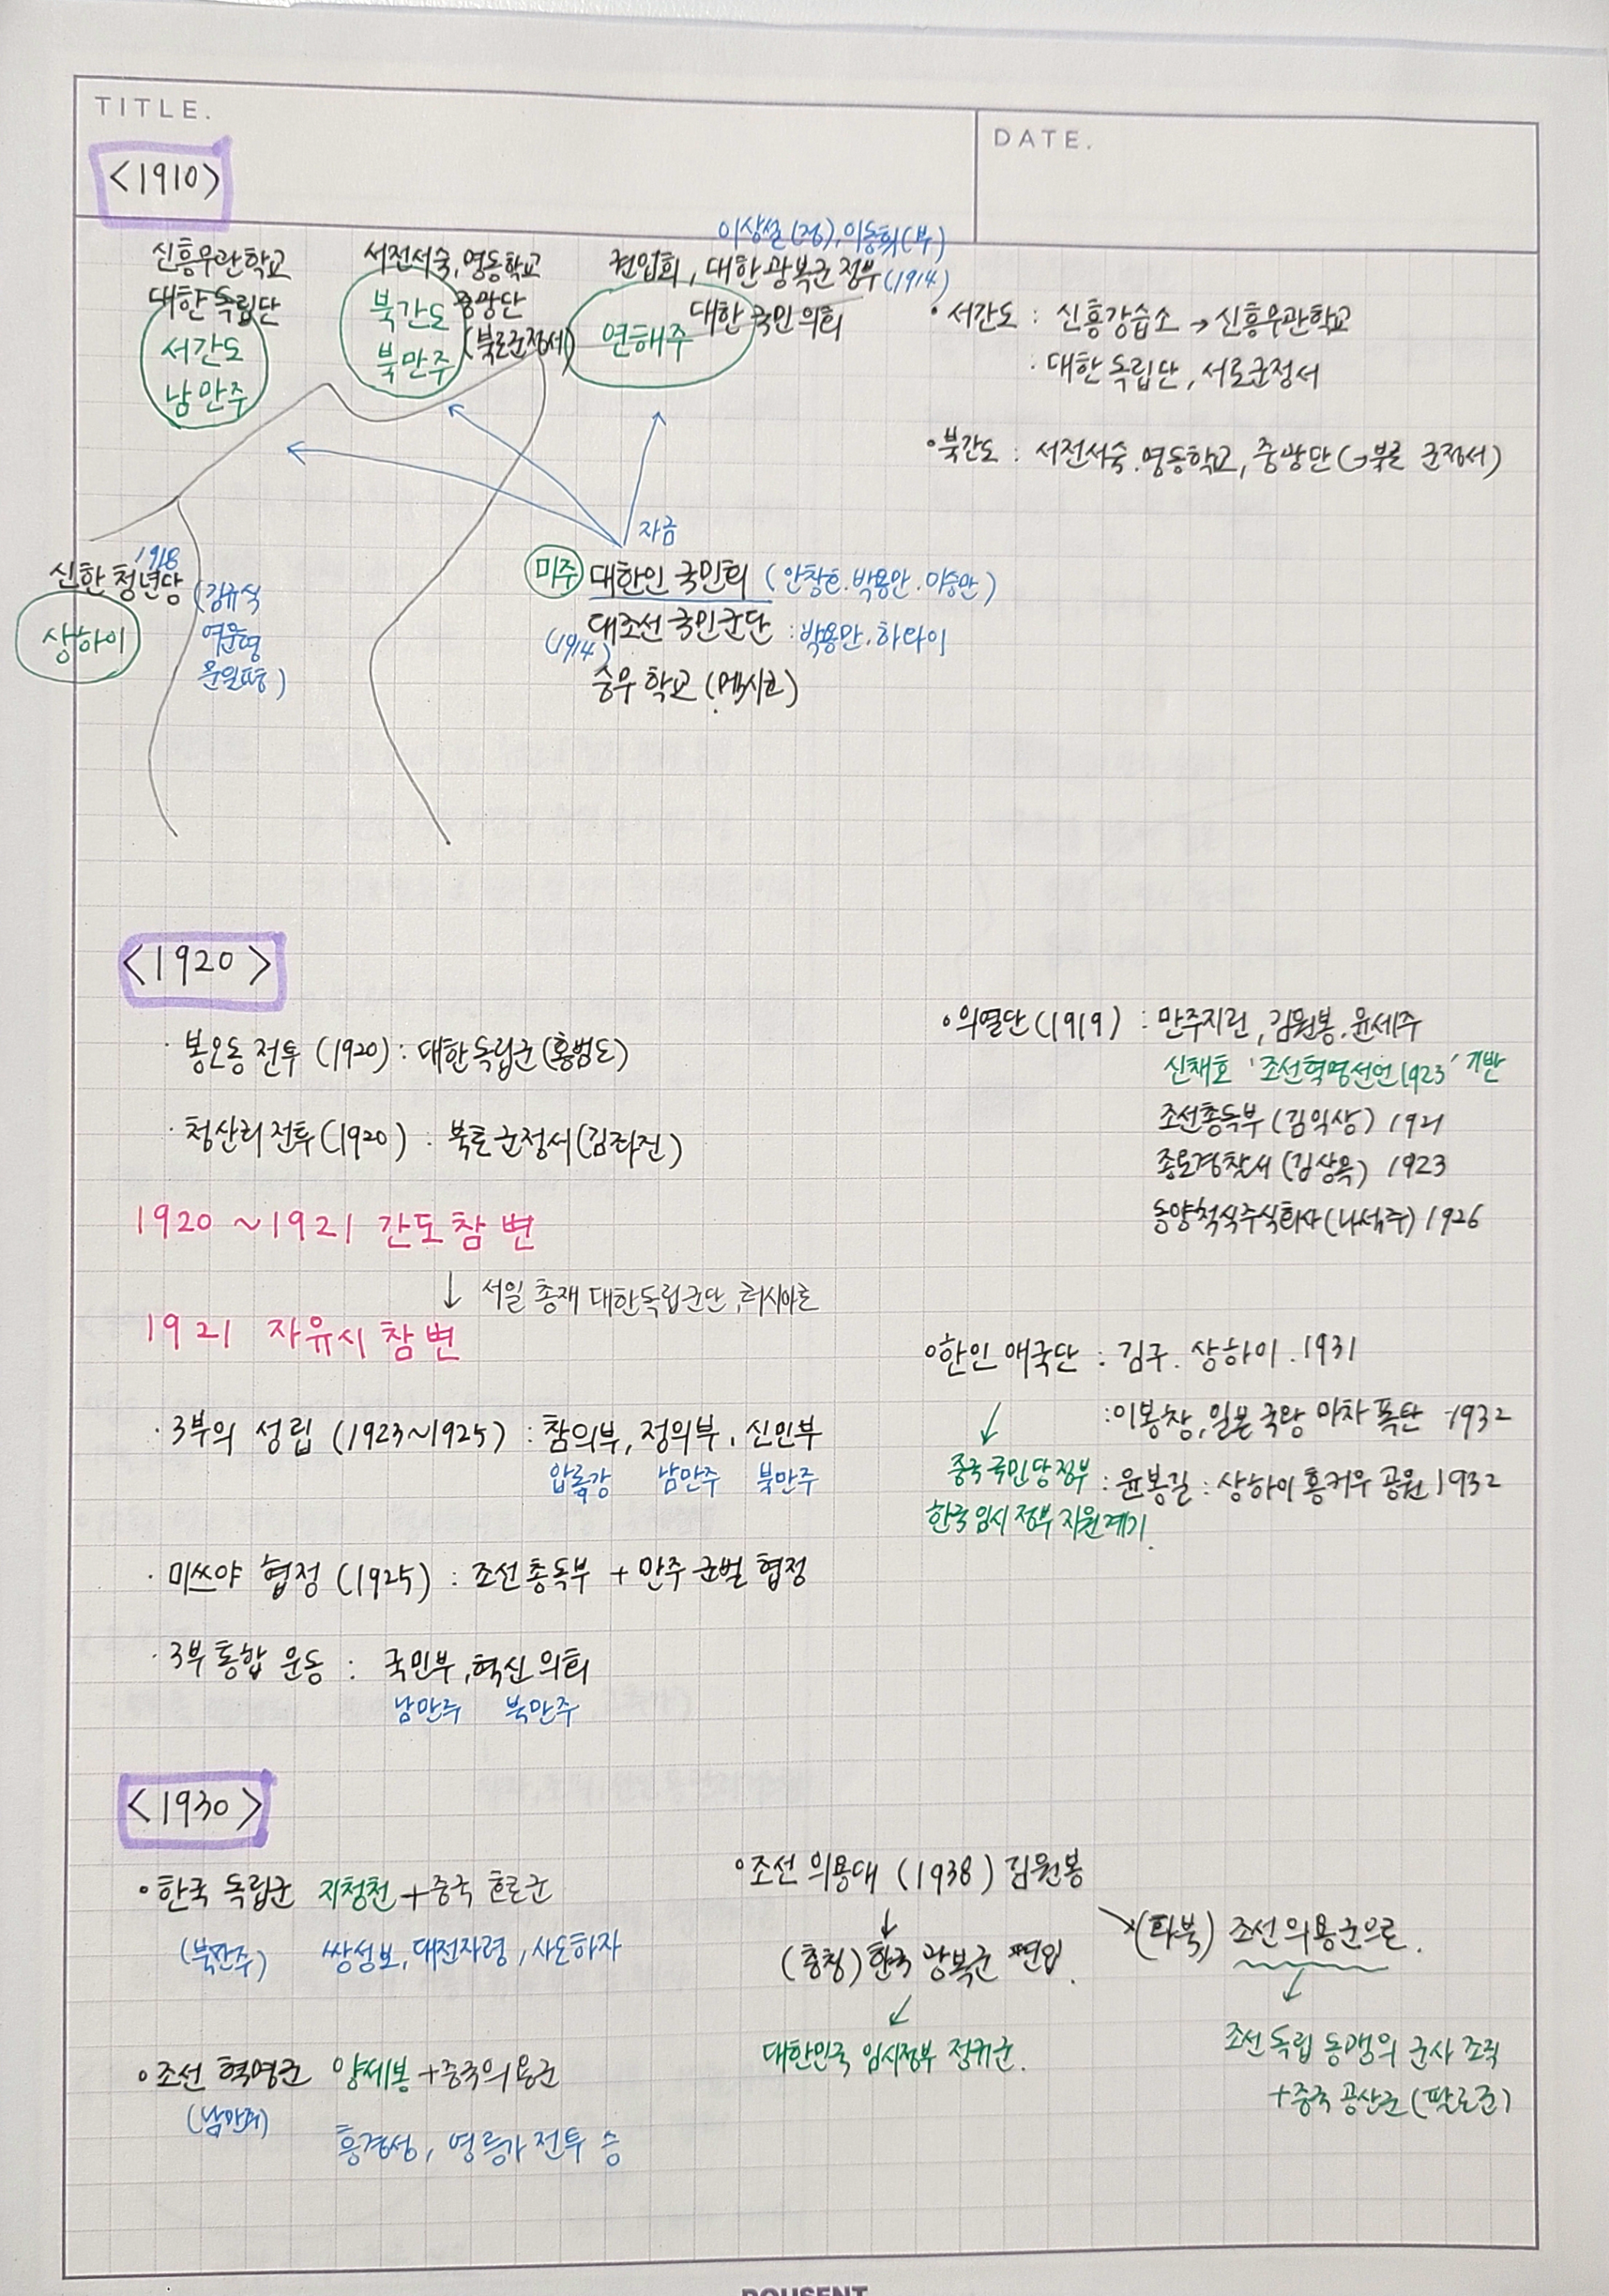 TITLE.
DATE.
<1910>
이상설(정), 이동휘(부)
신흥무관학교
대한독립단
서간도
남만주
서전서숙, 명동학교
북간도 중광단
북만주 (북로군정서)
권업회, 대한광복군 정부 (1914)
대한 국민 의회
연해주
• 서간도 : 신흥강습소 → 신흥무관학교
: 대한독립단, 서로군정서
• 북간도 : 서전서숙. 명동학교, 중광단(→북로 군정서)
자금
1918
신한 청년당 (김규식
여운형
문일평)
상하이
미주 대한인 국민회 (안창호. 박용만. 이승만)
대조선 국민군단 : 박용만. 하와이
(1914)
숭무 학교 (멕시코)
<1920>
· 봉오동 전투 (1920) : 대한독립군(홍범도)
· 청산리 전투(1920) : 북로군정서(김좌진)
1920 ~ 1921 간도참변
↓ 서일 총재 대한독립군단, 러시아로
1921 자유시 참변
· 3부의 성립 (1923~1925) : 참의부, 정의부, 신민부
압록강 남만주 북만주
· 미쓰야 협정 (1925) : 조선총독부 + 만주 군벌 협정
· 3부 통합 운동 : 국민부, 혁신 의회
남만주 북만주
• 의열단(1919) : 만주지린, 김원봉. 윤세주
신채호 '조선혁명선언1923' 기반
조선총독부(김익상) 1921
종로경찰서(김상옥) 1923
동양척식주식회사(나석주) 1926
• 한인 애국단 : 김구. 상하이. 1931
: 이봉창, 일본 국왕 마차 폭탄 1932
: 윤봉길 : 상하이 훙커우 공원 1932
↓
중국 국민당정부
한국 임시정부 지원계기.
<1930>
• 한국 독립군 지청천 + 중국 호로군
(북만주) 쌍성보, 대전자령, 사도하자
• 조선 혁명군 양세봉 + 중국의용군
(남만주)
흥경성, 영릉가 전투 승
• 조선 의용대 (1938) 김원봉
↓
(충칭) 한국 광복군 편입.
↓
대한민국 임시정부 정규군.
↘ (화북) 조선의용군으로.
↓
조선 독립 동맹의 군사 조직
+ 중국 공산군 (팔로군)